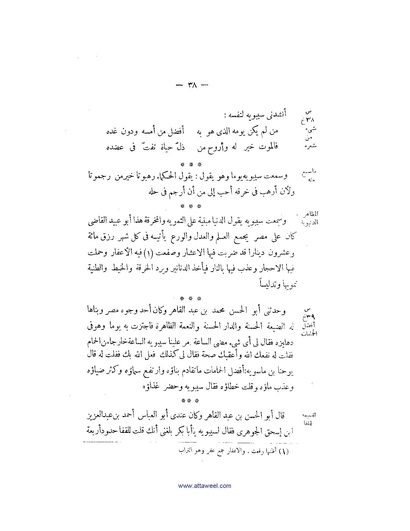 — ٣٨ —
أنشدنى سيبويه لنفسه :
من لم يكن يومه الذى هو به أفضل من أمسه ودون غده
فالموت خير له وأروح من حياة تفتّ فى عضده
* * *
وسمعت سيبويه يوما وهو يقول : يقول الحكماء رهبوتا خير من رحموتا
ولأن أرهب فى خرقه أحب إلى من أن أرحم فى حله
* * *
وسمعت سيبويه يقول الدنيا مبنية على التمويه والمخرقة هذا أبو عبيد القاضى
كان على مصر يجمع العلم والعدل والورع يأتيه فى كل شهر رزق مائة
وعشرون دينارا قد ضربت فيها الاعشار وصفعت (١) فيه الأعفار وحملت
فيها الاحجار وعذب فيها بالنار فيأخذ الدنانير ويرد الخرقة والخيط والطينة
تمويها وتدليسا
* * *
وحدثنى أبو الحسن محمد بن عبد القاهر وكان أحد وجوه مصر وبناها
له الضيعة الحسنة والدار الحسنة والنعمة الظاهرة فاجتزت به يوما وهو فى
دهليزه فقال لى أى شىء مضى الساعة مر علينا سيبويه الساعة خارجا من الحمام
فقلت له نفعك الله وأعقبك صحة فقال لى كذلك فعل الله بك فقلت له قال
يوحنا بن ماسويه : أفضل الحمامات ماتقادم بناؤه وارتفع سماؤه وكثر ضياؤه
وعذب ماؤه وقلت خطاؤه فقال سيبويه وحضر غذاؤه
* * *
قال أبو الحسن بن عبد القاهر وكان عندى أبو العباس أحمد بن عبدالعزيز
ابن إسحق الجوهرى فقال لسيبويه يأبا بكر بلغنى أنك قلت للقفا حدود أربعة
(١) أظنها رفعت . والاعفار جمع عفر وهو التراب
www.attaweel.com